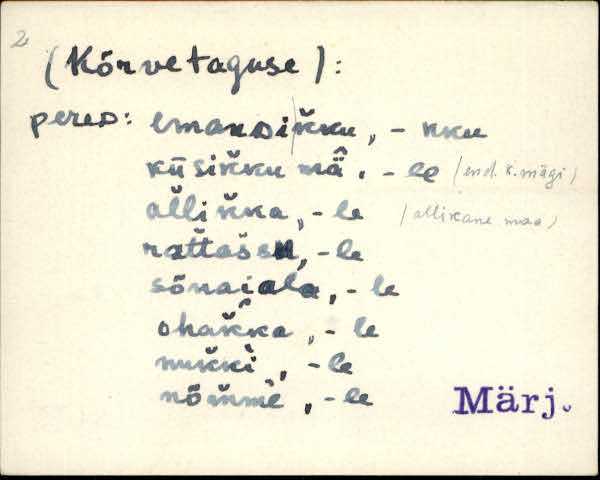 2
(Kõrvetaguse):
peres: emandik̆ku, - kku
kū́sik̆ku mä̂. - le (end. k. mägi)
ol̆lik̆ka, - le (allikane maa)
rat̆tasen, - le
sõnaiala, - le
ohak̆ka, - le
nuk̆ki, - le
nõm̆me, - le
Märj.